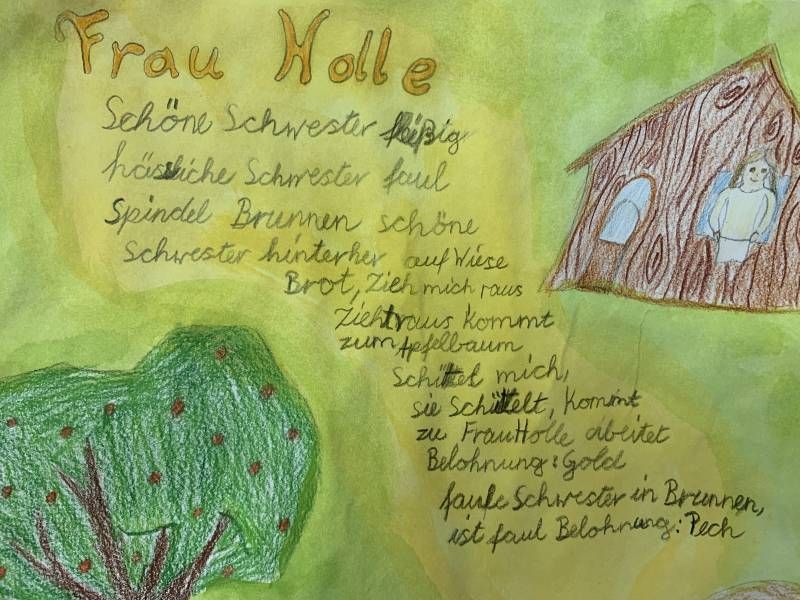 Frau Holle
Schöne Schwester fleißig
hässliche Schwester faul
Spindel Brunnen schöne
Schwester hinterher auf Wiese
Brot, Zieh mich raus
Zieht raus kommt
zum Apfelbaum
Schüttel mich,
sie Schüttelt, Kommt
zu Frau Holle arbeitet
Belohnung: Gold
faule Schwester in Brunnen,
ist faul Belohnung: Pech